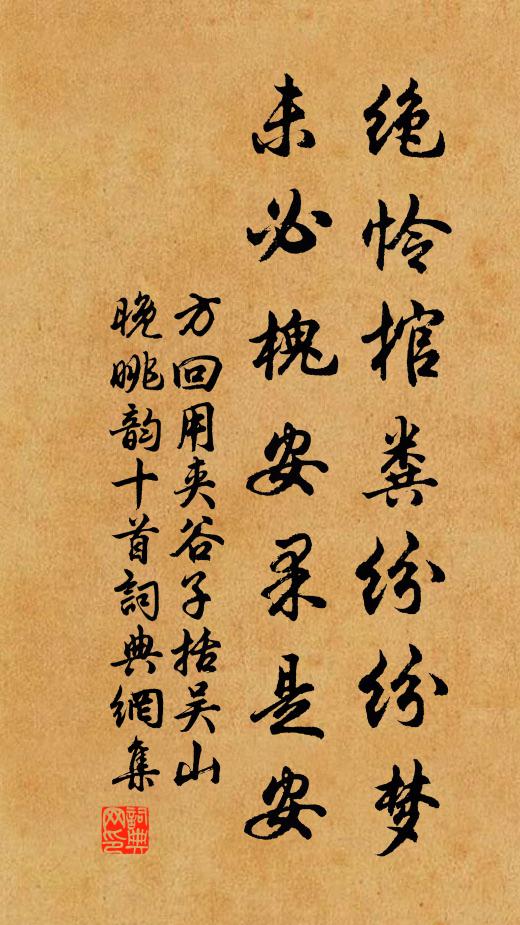 绝怜棺粪纷纷梦
未必槐安果是安
方回用夹谷子括吴山
晚眺韵十首詞典網集
詞典网印